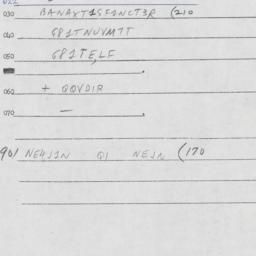 030 BANAYT1SF1NCT3R (210
040 G81TNUVMTT
050 G81TE,LF
060 + QOVDIR
070 —
901 NE4J1N QI NEJN (170